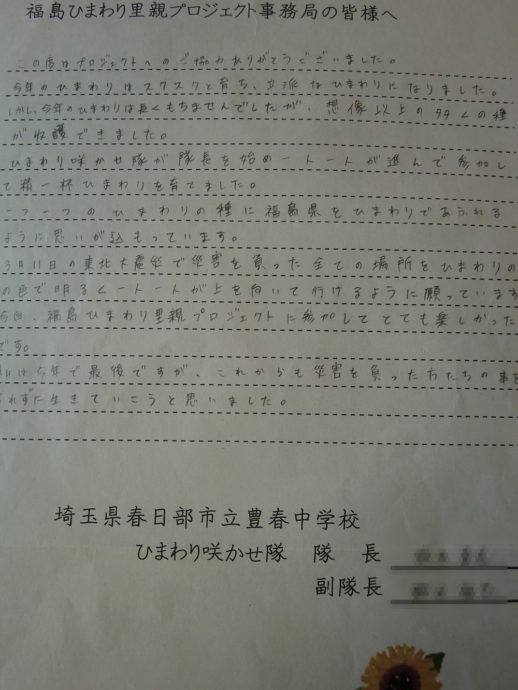 福島ひまわり里親プロジェクト事務局の皆様へ
この度はプロジェクトへのご協力ありがとうございました。
今年のひまわりはスクスクと育ち、立派なひまわりになりました。
しかし、今年のひまわりは長くもちませんでしたが、想像以上の多くの種
が収穫できました。
ひまわり咲かせ隊が隊長を始め一人一人が進んで参加し
て精一杯ひまわりを育てました。
一つ一つのひまわりの種に福島県をひまわりであふれる
ように思いが込もっています。
3月11日の東北大震災で災害を負った全ての場所をひまわりの
の色で明るく一人一人が上を向いて行けるように願っています
今回、福島ひまわり里親プロジェクトに参加してとても楽しかった
です。
は今年で最後ですが、これからも災害を負った方たちの事を
れずに生きていこうと思いました。
埼玉県春日部市立豊春中学校
ひまわり咲かせ隊 隊 長
副隊長